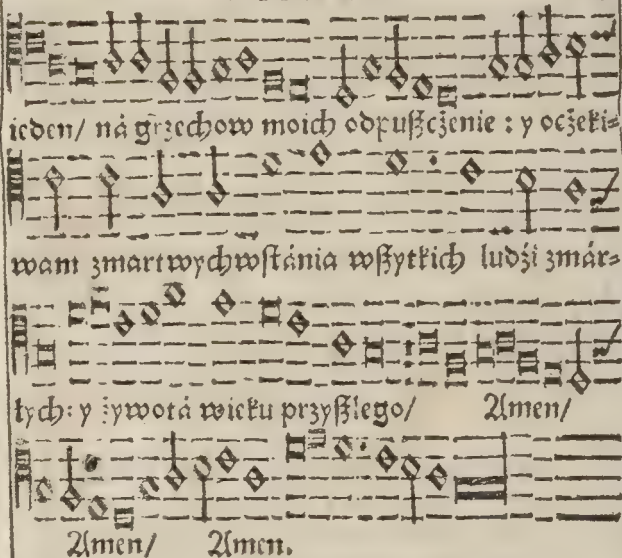 ieden/ ná grzechow moich odpuſzcżenie : y ocżeki⸗
wam zmartwychwſtánia wſzytkich ludźi zmár⸗
łych: y żywotá wieku przyſzlego/ Amen/
Amen/ Amen.